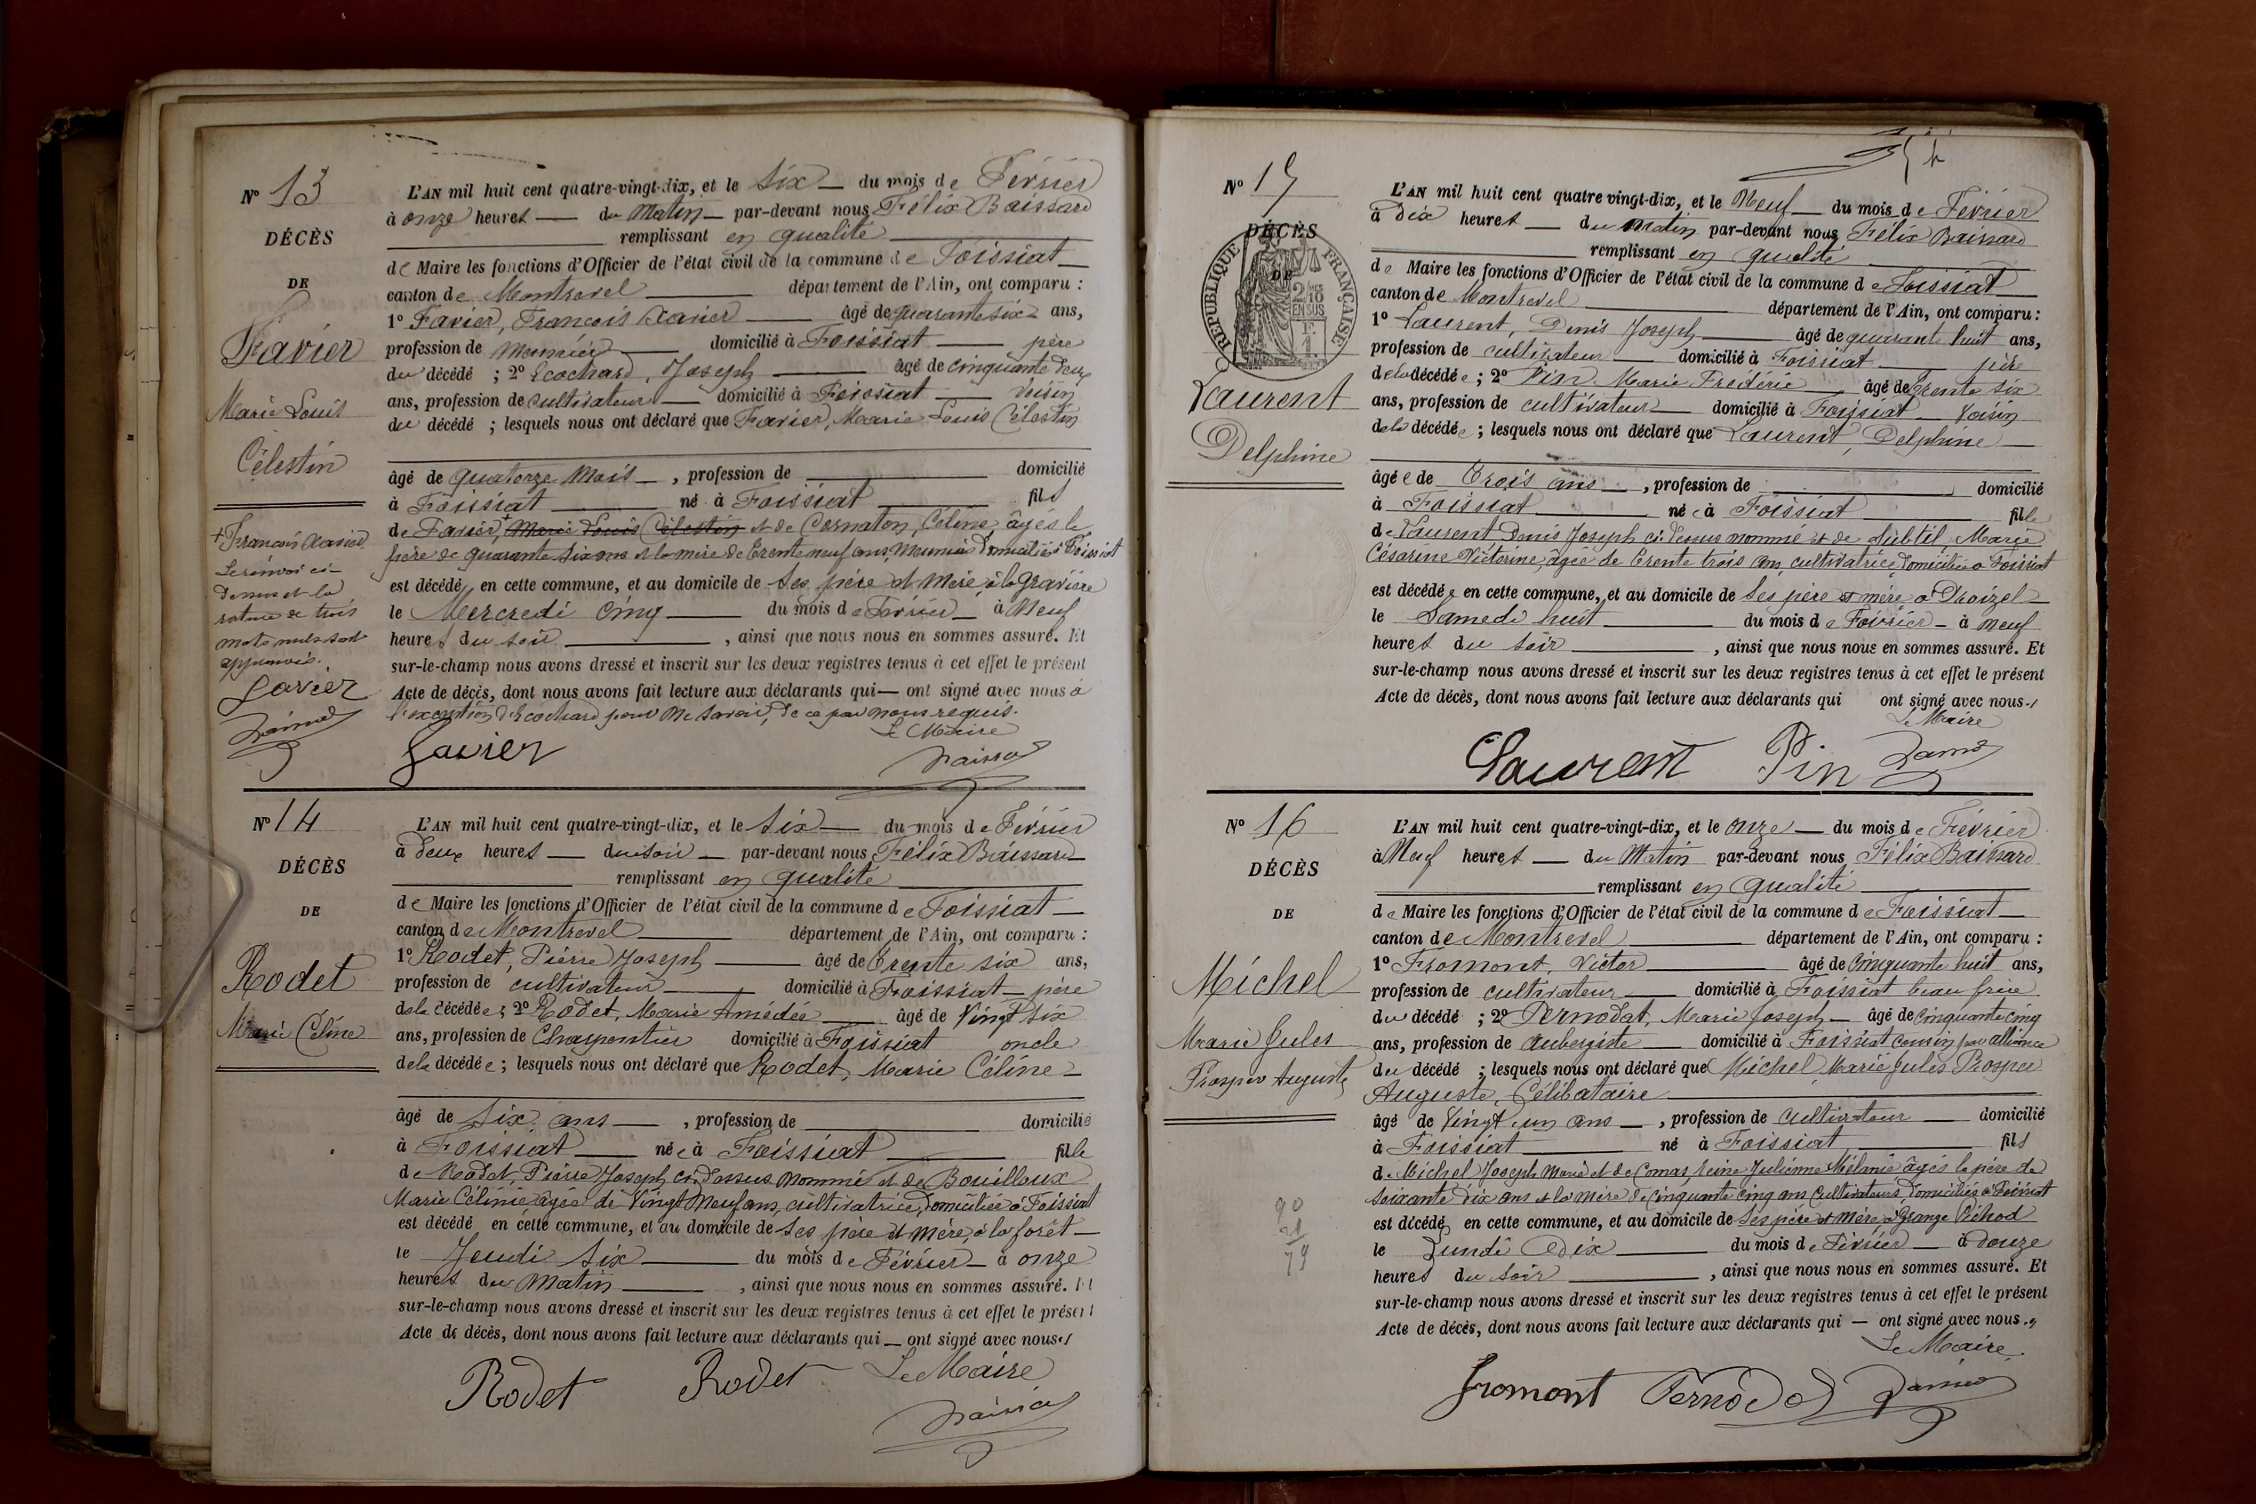 N° 13
DÉCÈS
DE
Favier
Marie Louis
Célestin
+ François Xavier
Le renvoi ci-
dessus et la
rature de trois
mots nuls sont
approuvés.
Favier
L'AN mil huit cent quatre-vingt-dix, et le Six du mois de Février
à onze heures du Matin par-devant nous Félix Baissard
remplissant en qualité
de Maire les fonctions d'Officier de l'état civil de la commune de Foissiat
canton de Montrevel département de l'Ain, ont comparu :
1° Favier, François Xavier âgé de quarante six ans,
profession de Meunier domicilié à Foissiat père
du décédé ; 2° Ecochard, Joseph âgé de cinquante deux
ans, profession de cultivateur domicilié à Foissiat voisin
du décédé ; lesquels nous ont déclaré que Favier, Marie Louis Célestin
âgé de quatorze Mois , profession de domicilié
à Foissiat né à Foissiat fils
de Favier, + Marie Louis Célestin et de Cornaton, Céline, âgés le
père de quarante six ans et la mère de trente neuf ans, Meuniers domiciliés à Foissiat
est décédé en cette commune, et au domicile de Ses père et mère, à la Gravière
le Mercredi cinq du mois de Février à Neuf
heures du soir , ainsi que nous nous en sommes assuré. Et
sur-le-champ nous avons dressé et inscrit sur les deux registres tenus à cet effet le présent
Acte de décès, dont nous avons fait lecture aux déclarants qui ont signé avec nous à
l'exception d'Ecochard pour ne savoir, de ce par nous requis.
Le Maire
Favier
N° 14
DÉCÈS
DE
Rodet
Marie Céline
L'AN mil huit cent quatre-vingt-dix, et le Six du mois de Février
à deux heures du soir par-devant nous Félix Baissard
remplissant en qualité
de Maire les fonctions d'Officier de l'état civil de la commune de Foissiat
canton de Montrevel département de l'Ain, ont comparu :
1° Rodet, Pierre Joseph âgé de trente six ans,
profession de cultivateur domicilié à Foissiat père
de la décédée ; 2° Rodet, Marie Amédée âgé de Vingt six
ans, profession de Charpentier domicilié à Foissiat oncle
de la décédée ; lesquels nous ont déclaré que Rodet, Marie Céline
âgé de Six ans , profession de domicilié
à Foissiat née à Foissiat fille
de Rodet, Pierre Joseph ci-dessus nommé et de Bouilloux
Marie Célinie, âgée de Vingt Neuf ans, cultivatrice, domiciliée à Foissiat
est décédé en cette commune, et au domicile de Ses père et mère, à la forêt
le Jeudi Six du mois de Février à onze
heures du Matin , ainsi que nous nous en sommes assuré. Et
sur-le-champ nous avons dressé et inscrit sur les deux registres tenus à cet effet le présent
Acte de décès, dont nous avons fait lecture aux déclarants qui ont signé avec nous
Rodet Rodet Le Maire
N° 15
DÉCÈS
DE
RÉPUBLIQUE FRANÇAISE
2/10 EN SUS
Laurent
Delphine
L'AN mil huit cent quatre vingt-dix, et le Neuf du mois de Février
à Dix heures du Matin par-devant nous Félix Baissard
remplissant en qualité
de Maire les fonctions d'Officier de l'état civil de la commune de Foissiat
canton de Montrevel département de l'Ain, ont comparu :
1° Laurent, Denis Joseph âgé de quarante huit ans,
profession de cultivateur domicilié à Foissiat père
de la décédée ; 2° Pin, Marie Frédéric âgé de trente six
ans, profession de cultivateur domicilié à Foissiat Voisin
de la décédée ; lesquels nous ont déclaré que Laurent, Delphine
âgée de Trois ans , profession de domicilié
à Foissiat née à Foissiat fille
de Laurent Denis Joseph ci-dessus nommé et de Subtil Marie
Césarine Victorine, âgée de trente trois ans, cultivatrice, domiciliée à Foissiat
est décédée en cette commune, et au domicile de Ses père et mère à Droizel
le Samedi huit du mois de Février à neuf
heures du soir , ainsi que nous nous en sommes assuré. Et
sur-le-champ nous avons dressé et inscrit sur les deux registres tenus à cet effet le présent
Acte de décès, dont nous avons fait lecture aux déclarants qui ont signé avec nous
Le Maire
Laurent Pin
N° 16
DÉCÈS
DE
Michel
Marie Jules
Prosper Auguste
90
21
79
L'AN mil huit cent quatre-vingt-dix, et le onze du mois de Février
à Neuf heures du Matin par-devant nous Félix Baissard
remplissant en qualité
de Maire les fonctions d'Officier de l'état civil de la commune de Foissiat
canton de Montrevel département de l'Ain, ont comparu :
1° Fromont, Victor âgé de Cinquante huit ans,
profession de cultivateur domicilié à Foissiat beau frère
du décédé ; 2° Pernodat, Marie Joseph âgé de cinquante cinq
ans, profession de aubergiste domicilié à Foissiat cousin par alliance
du décédé ; lesquels nous ont déclaré que Michel, Marie Jules Prosper
Auguste, Célibataire
âgé de Vingt un ans , profession de cultivateur domicilié
à Foissiat né à Foissiat fils
de Michel Joseph Marie et de Comas, Julienne Mélanie âgés le père de
soixante dix ans et la mère de cinquante cinq ans cultivateurs, domiciliés à Foissiat
est décédé en cette commune, et au domicile de Ses père et mère, à Grange
le Lundi Dix du mois de Février à Douze
heures du soir , ainsi que nous nous en sommes assuré. Et
sur-le-champ nous avons dressé et inscrit sur les deux registres tenus à cet effet le présent
Acte de décès, dont nous avons fait lecture aux déclarants qui ont signé avec nous
Le Maire
Fromont